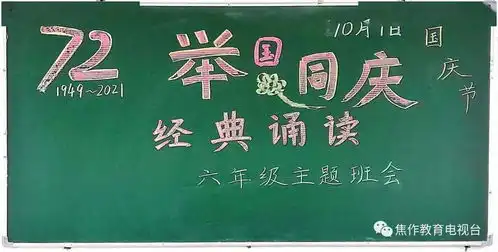 72
1949~2021
举国同庆
10月1日
国庆节
经典诵读
六年级主题班会
焦作教育电视台